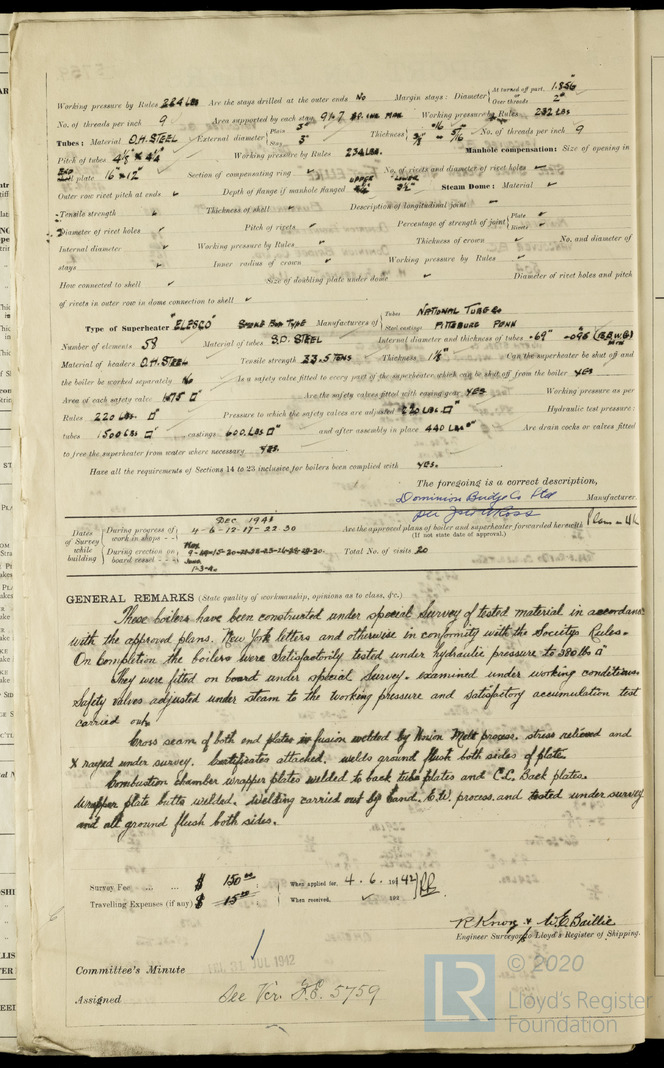 Working pressure by Rules 224 LBS Are the stays drilled at the outer ends No Margin stays: Diameter { At turned off part. 1.856" Over threads 2"
No. of threads per inch 9 Area supported by each stay 9½ × 7 Working pressure by Rules 232 LBS
Tubes: Material O.H. STEEL External diameter { Plain 3" Stay 3" Thickness { No. of threads per inch 9
Pitch of tubes 4⅛" × 4¼" Working pressure by Rules 234 LBS. Manhole compensation: Size of opening in
END plate 16" × 12" Section of compensating ring ✓ No. of rivets and diameter of rivet holes ✓
Outer row rivet pitch at ends ✓ Depth of flange if manhole flanged UPPER LOWER 3½" Steam Dome: Material ✓
Tensile strength ✓ Thickness of shell ✓ Description of longitudinal joint ✓
Diameter of rivet holes ✓ Pitch of rivets ✓ Percentage of strength of joint { Plate ✓ Rivets ✓
Internal diameter ✓ Working pressure by Rules ✓ Thickness of crown ✓ No. and diameter of
stays ✓ Inner radius of crown ✓ Working pressure by Rules ✓
How connected to shell ✓ Size of doubling plate under dome ✓ Diameter of rivet holes and pitch
of rivets in outer row in dome connection to shell ✓
Type of Superheater "ELESCO" SMOKE BOX TYPE Manufacturers of { Tubes NATIONAL TUBE Co Steel castings PITTSBURG PENN
Number of elements 58 Material of tubes S.D. STEEL Internal diameter and thickness of tubes .69" .095
Material of headers O.H. STEEL Tensile strength 33.5 TONS Thickness 1⅛" Can the superheater be shut off and
the boiler be worked separately No Is a safety valve fitted to every part of the superheater which can be shut off from the boiler YES
Area of each safety valve 1.675 □" Are the safety valves fitted with easing gear YES Working pressure as per
Rules 220 LBS. □" Pressure to which the safety valves are adjusted 220 LBS. □" Hydraulic test pressure:
tubes 1500 LBS □", castings 600 LBS □" and after assembly in place 440 LBS □" Are drain cocks or valves fitted
to free the superheater from water where necessary YES.
Have all the requirements of Sections 14 to 23 inclusive for boilers been complied with YES.
The foregoing is a correct description,
Dominion Bridge Co Ltd Manufacturer.
Dates of Survey while building { During progress of work in shops - - Dec 1941 4-6-12-17-22 30 Are the approved plans of boiler and superheater forwarded herewith
(If not state date of approval.)
During erection on board vessel - - - Total No. of visits 20
GENERAL REMARKS (State quality of workmanship, opinions as to class, &c.)
These boilers have been constructed under special survey of tested material in accordance
with the approved plans. New York letters and otherwise in conformity with the Societys Rules.
On completion the boilers were satisfactorily tested under hydraulic pressure to 380 lbs □"
They were fitted on board under special survey. examined under working conditions.
Safety valves adjusted under steam to the working pressure and satisfactory accumulation test
carried out.
Cross seam of both end plates fusion welded by Union Melt process. stress relieved and
X rayed under survey. Certificates attached. welds ground flush both sides of plate.
Combustion chamber wrapper plates welded to back tube plates and C.C. Back plates.
Wrapper plate butts welded. Welding carried out by hand. E.W. process. and tested under survey
and all ground flush both sides.
Survey Fee ... ... $ 150.00 : When applied for, 4. 6. 1942
Travelling Expenses (if any) $ 15.00 : When received, 192
R Knox & W.E. Baillie
Engineer Surveyors to Lloyd's Register of Shipping.
Committee's Minute 31 JUL 1942
Assigned See Vcr. F.E. 5759
LR © 2020
Lloyd's Register
Foundation